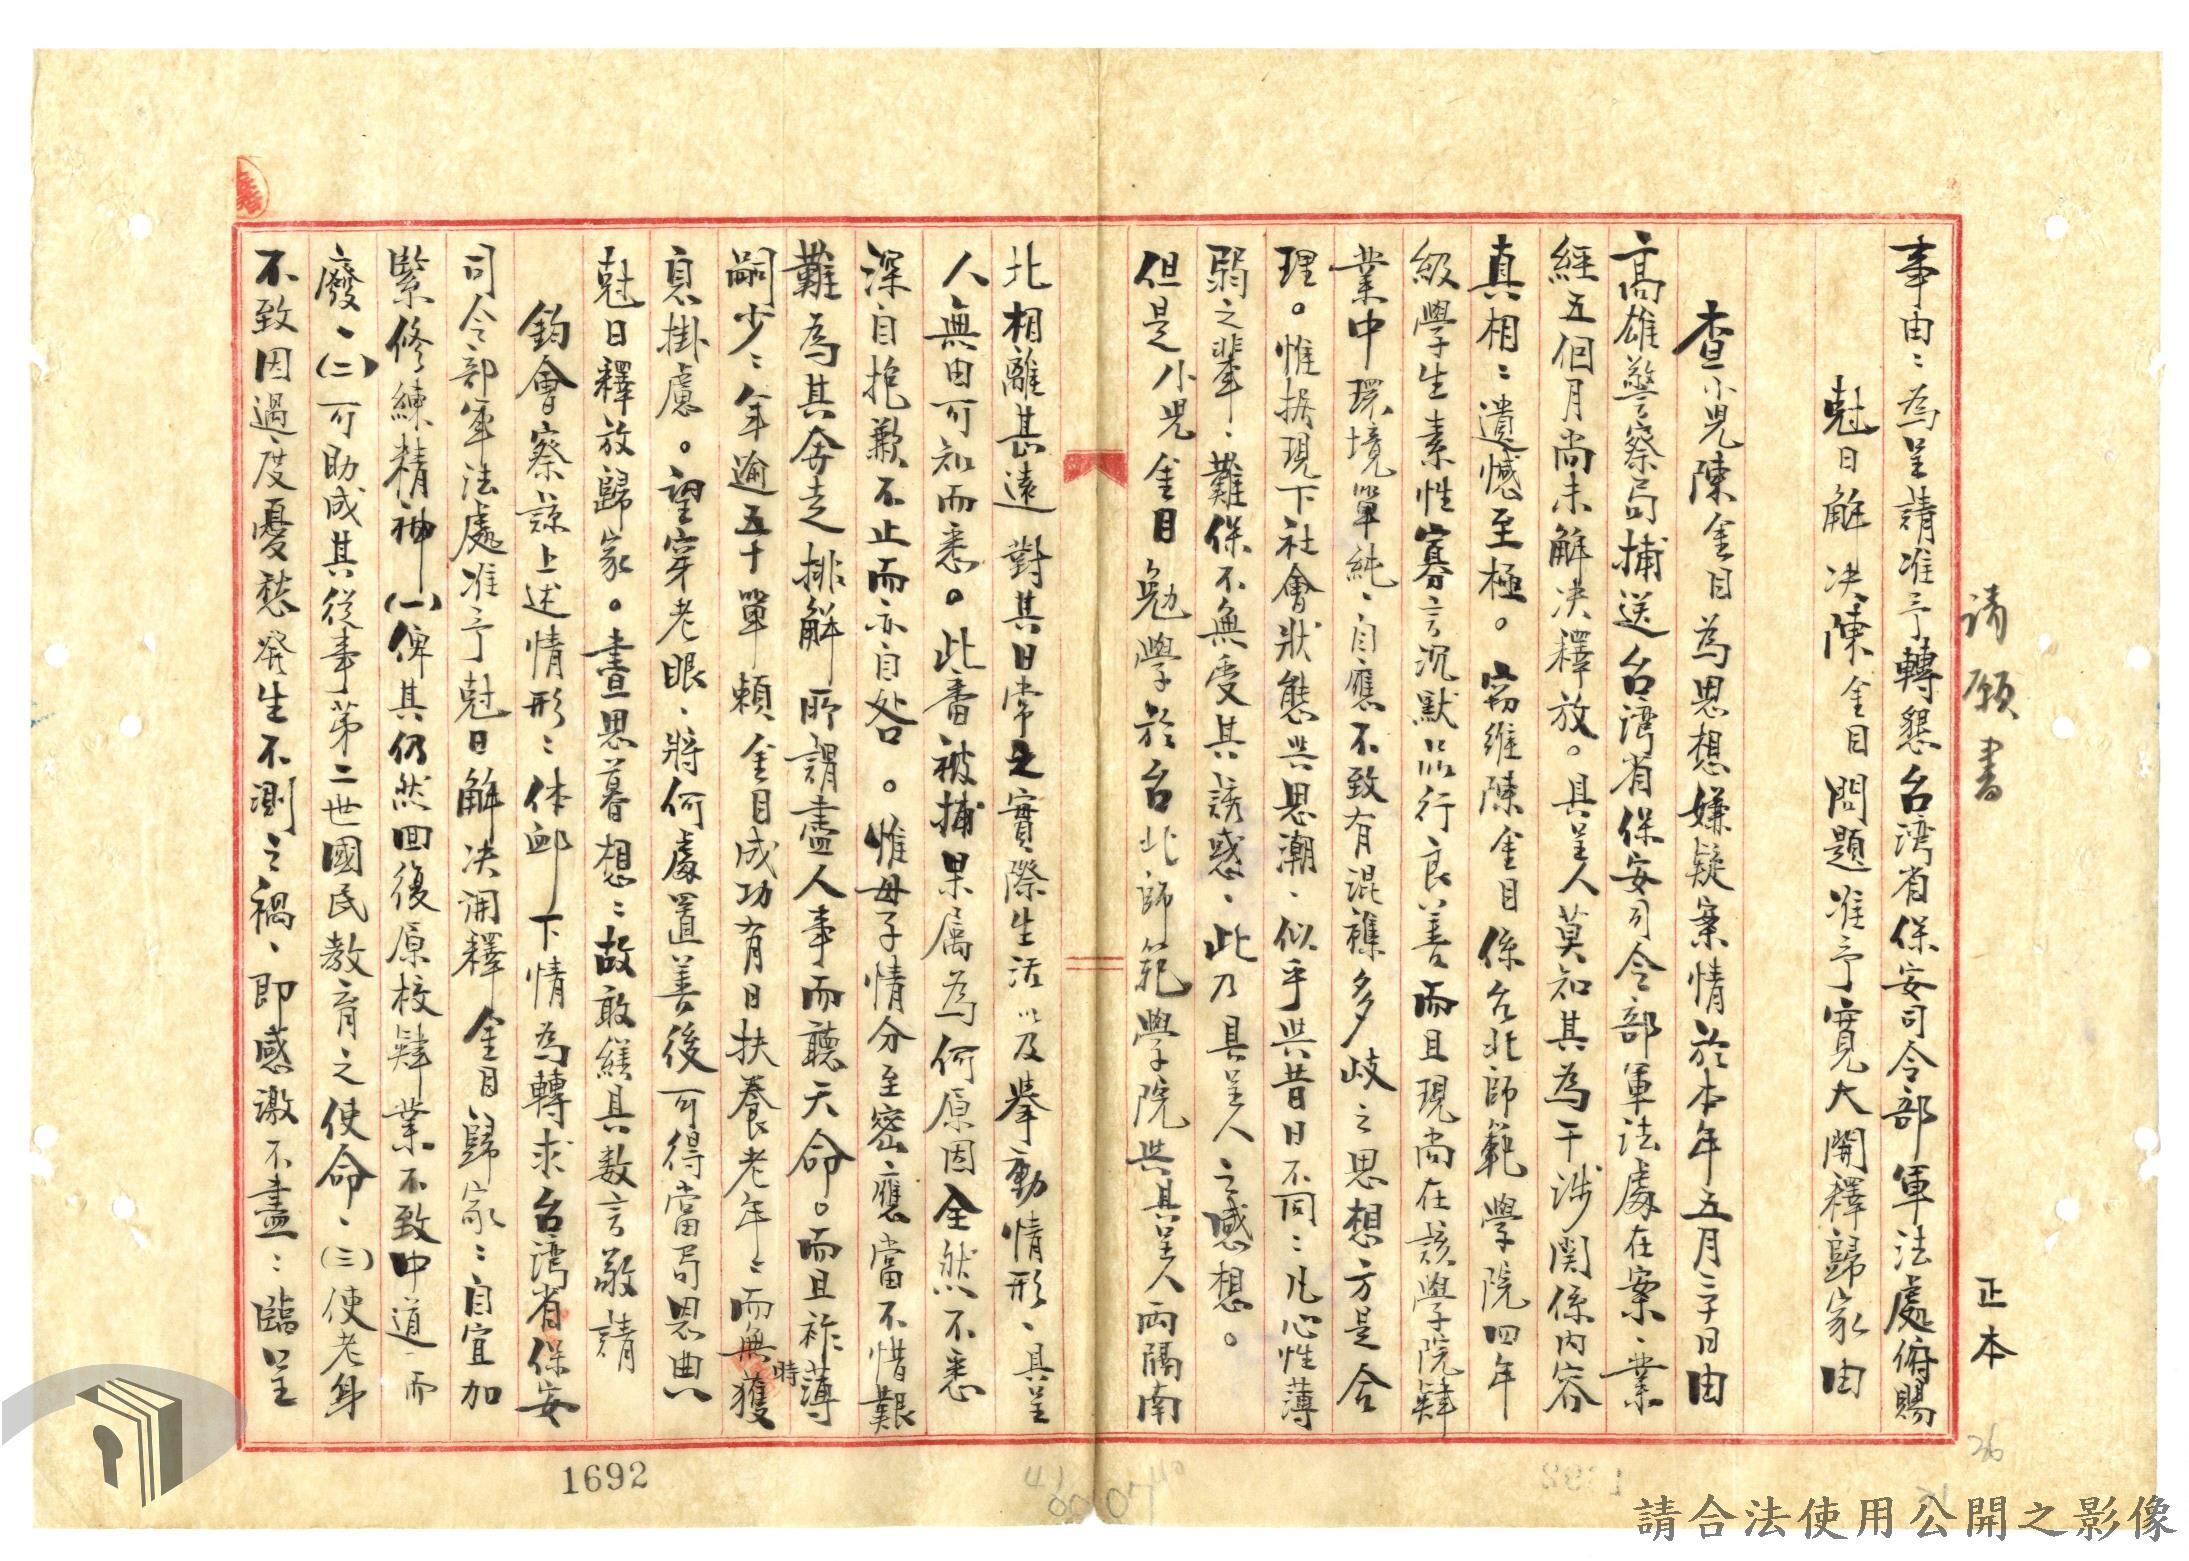 請願書
正本
事由：為呈請准予轉懇台湾省保安司令部軍法處俯賜
尅日解決陳金目問題准予寬大開釋歸家由
查小児陳金目為思想嫌疑案情於本年五月三十日由
高雄警察局捕送台湾省保安司令部軍法處在案、業
經五個月尚未解決釋放。具呈人莫知其為干涉関係内容
真相：遺憾至極。窃維陳金目係台北師範學院四年
級學生素性寡言沉默以行良善而且現尚在該學院肄
業中環境單純、自應不致有混襍多歧之思想方是合
理。惟据現下社會狀態與思潮、似乎與昔日不同：凡心性薄
弱之輩、難保不無受其誘惑、此乃具呈人之感想。
但是小児金目勉學於台北師範學院與具呈人両隔南
北相離甚遠對其日常之實際生活以及擧動情形、具呈
人無由可知而悉。此番被捕果属為何原因全然不悉
深自抱歉不止而亦自咎。惟母子情分至密應當不惜艱
難為其奔走排解所謂盡人事而聽天命。而且祚薄
嗣少：年逾五十單賴金目成功有日扶養老年：而無時獲
息掛慮。望穿老眼、將何處置善後可得當局恩典
尅日釋放歸家。晝思暮想：故敢繕具数言敬請
鈞會察諒上述情形：体卹下情為轉求台湾省保安
司令部軍法處准予尅日解决開釋金目歸家：自宜加
緊修練精神(一)俾其仍然回復原校肄業不致中道而
廢、(二)可助成其從事第二世國民教育之使命、(三)使老身
不致因過度憂愁発生不測之禍、即感激不盡：臨呈
1692
26
請合法使用公開之影像